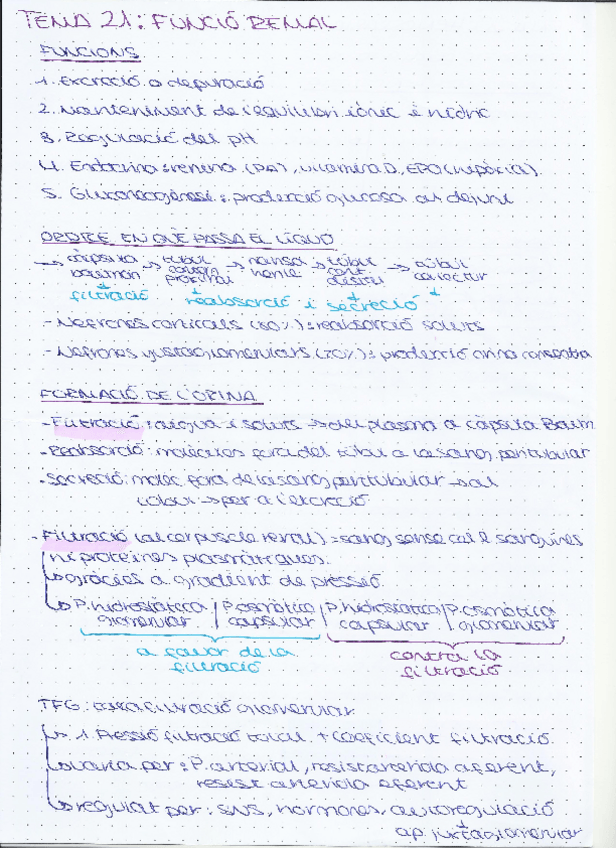 TEMA 21: FUNCIÓ RENAL
FUNCIONS
1. Excreció o depuració
2. Manteniment de l'equilibri iònic i hídric
3. Regulació del pH
4. Endocrina: renina (PA), vitamina D, EPO (hipòxia)
5. Gluconeogènesi: producció glucosa en dejuni
ORDRE EN QUÈ PASSA EL LÍQUID
→ càpsula bowman → túbul contorn proximal → nansa henle → túbul cont distal → túbul col·lector
filtració reabsorció i secreció
- Nefrones corticals (80%): reabsorció soluts
- Nefrones yustaglomerulars (20%): producció orina concentra
FORMACIÓ DE L'ORINA
- Filtració: aigua i soluts → del plasma a càpsula Bowm
- Reabsorció: molècules fora del túbul a la sang peritubular
- Secreció: molec fora de la sang peritubular → al
túbul → per a l'excreció
- Filtració (al corpuscle renal): sang sense cèl·l sanguínes
ni proteïnes plasmàtiques.
↳ gràcies a gradient de pressió
↳ P. hidrostàtica glomerular / P. osmòtica capsular / P. hidrostàtica capsular / P. osmòtica glomerular
a favor de la filtració
contra la filtració
TFG: taxa filtració glomerular
↳ 1. Pressió filtració total + coeficient filtració.
↳ varia per: P. arterial, resist arteriola aferent,
resist arteriola eferent
↳ regulat per: SNS, hormones, autoregulació
ap. juxtaglomerular